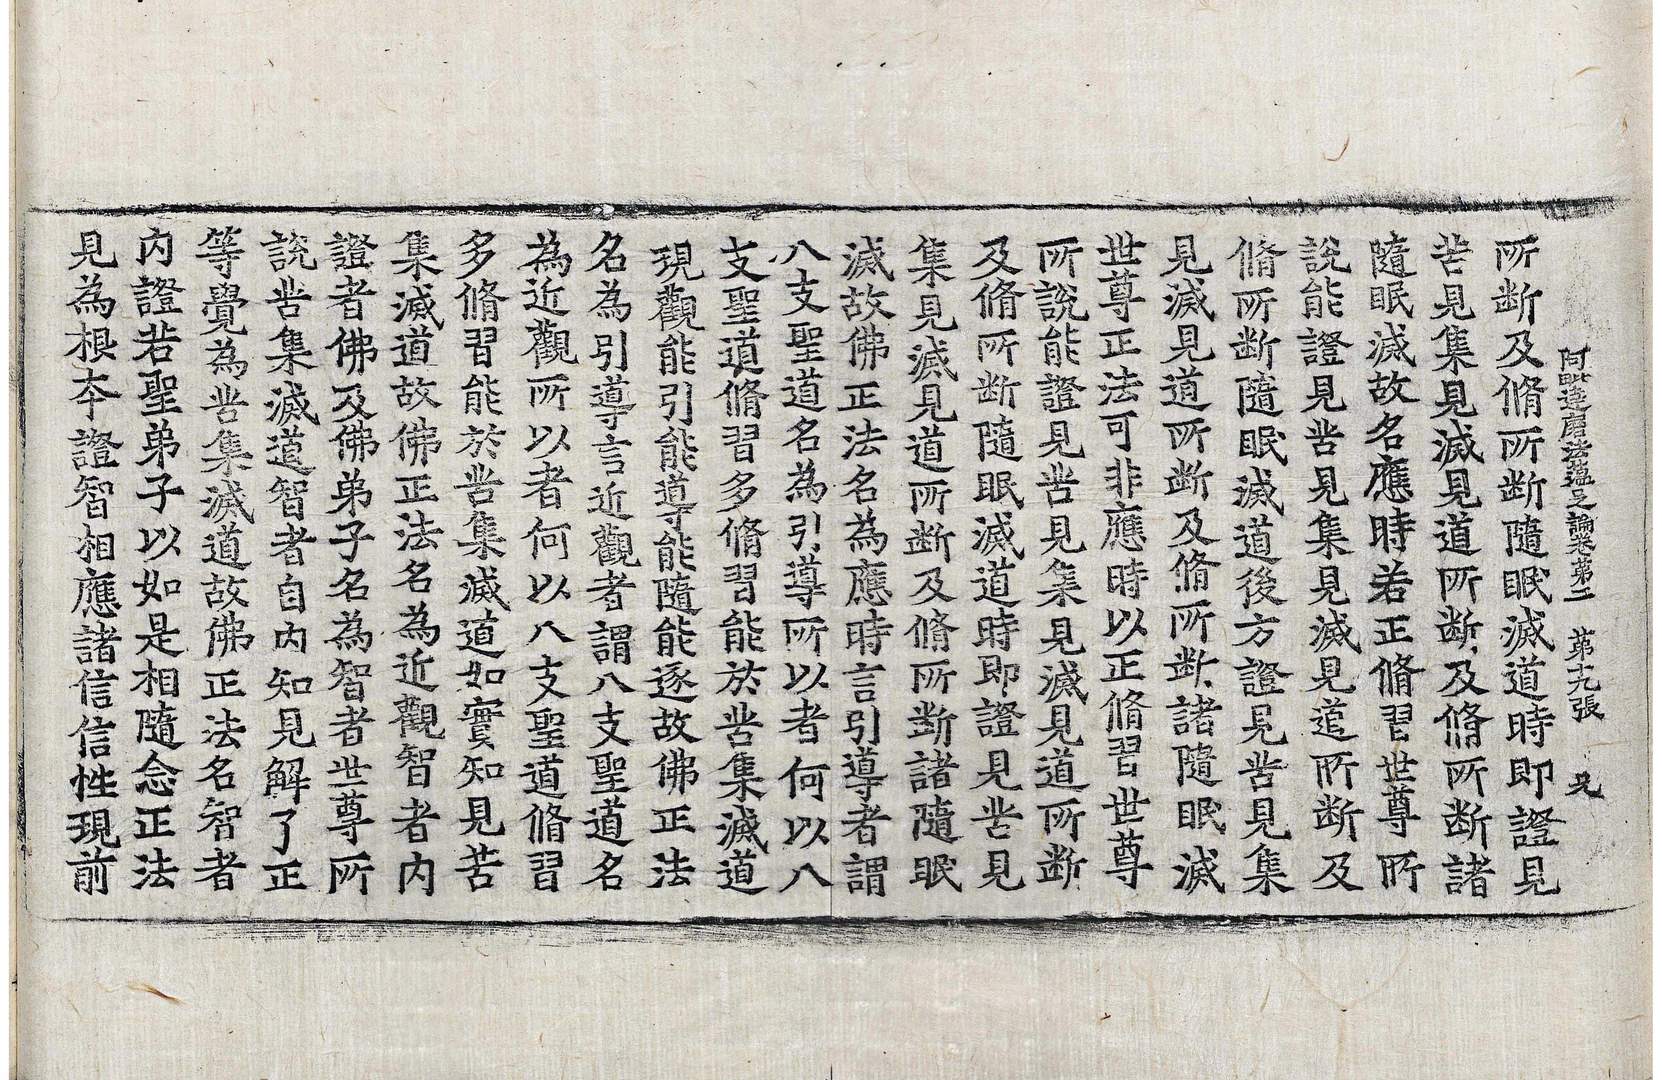 阿毗達磨法蘊足論卷第二　第十九張　兄
所斷及脩所斷隨眠滅道時即證見
苦見集見滅見道所斷及脩所斷諸
隨眠滅故名應時若正脩習世尊所
說能證見苦見集見滅見道所斷及
脩所斷隨眠滅道後方證見苦見集
見滅見道所斷及脩所斷諸隨眠滅
世尊正法可非應時以正脩習世尊
所說能證見苦見集見滅見道所斷
及脩所斷隨眠滅道時即證見苦見
集見滅見道所斷及脩所斷諸隨眠
滅故佛正法名為應時言引導者謂
八支聖道名為引導所以者何以八
支聖道脩習多脩習能於苦集滅道
現觀能引能導能隨能逐故佛正法
名為引導言近觀者謂八支聖道名
為近觀所以者何以八支聖道脩習
多脩習能於苦集滅道如實知見苦
集滅道故佛正法名為近觀智者內
證者佛及佛弟子名為智者世尊所
說苦集滅道智者自內知見解了正
等覺為苦集滅道故佛正法名智者
內證若聖弟子以如是相隨念正法
見為根本證智相應諸信信性現前